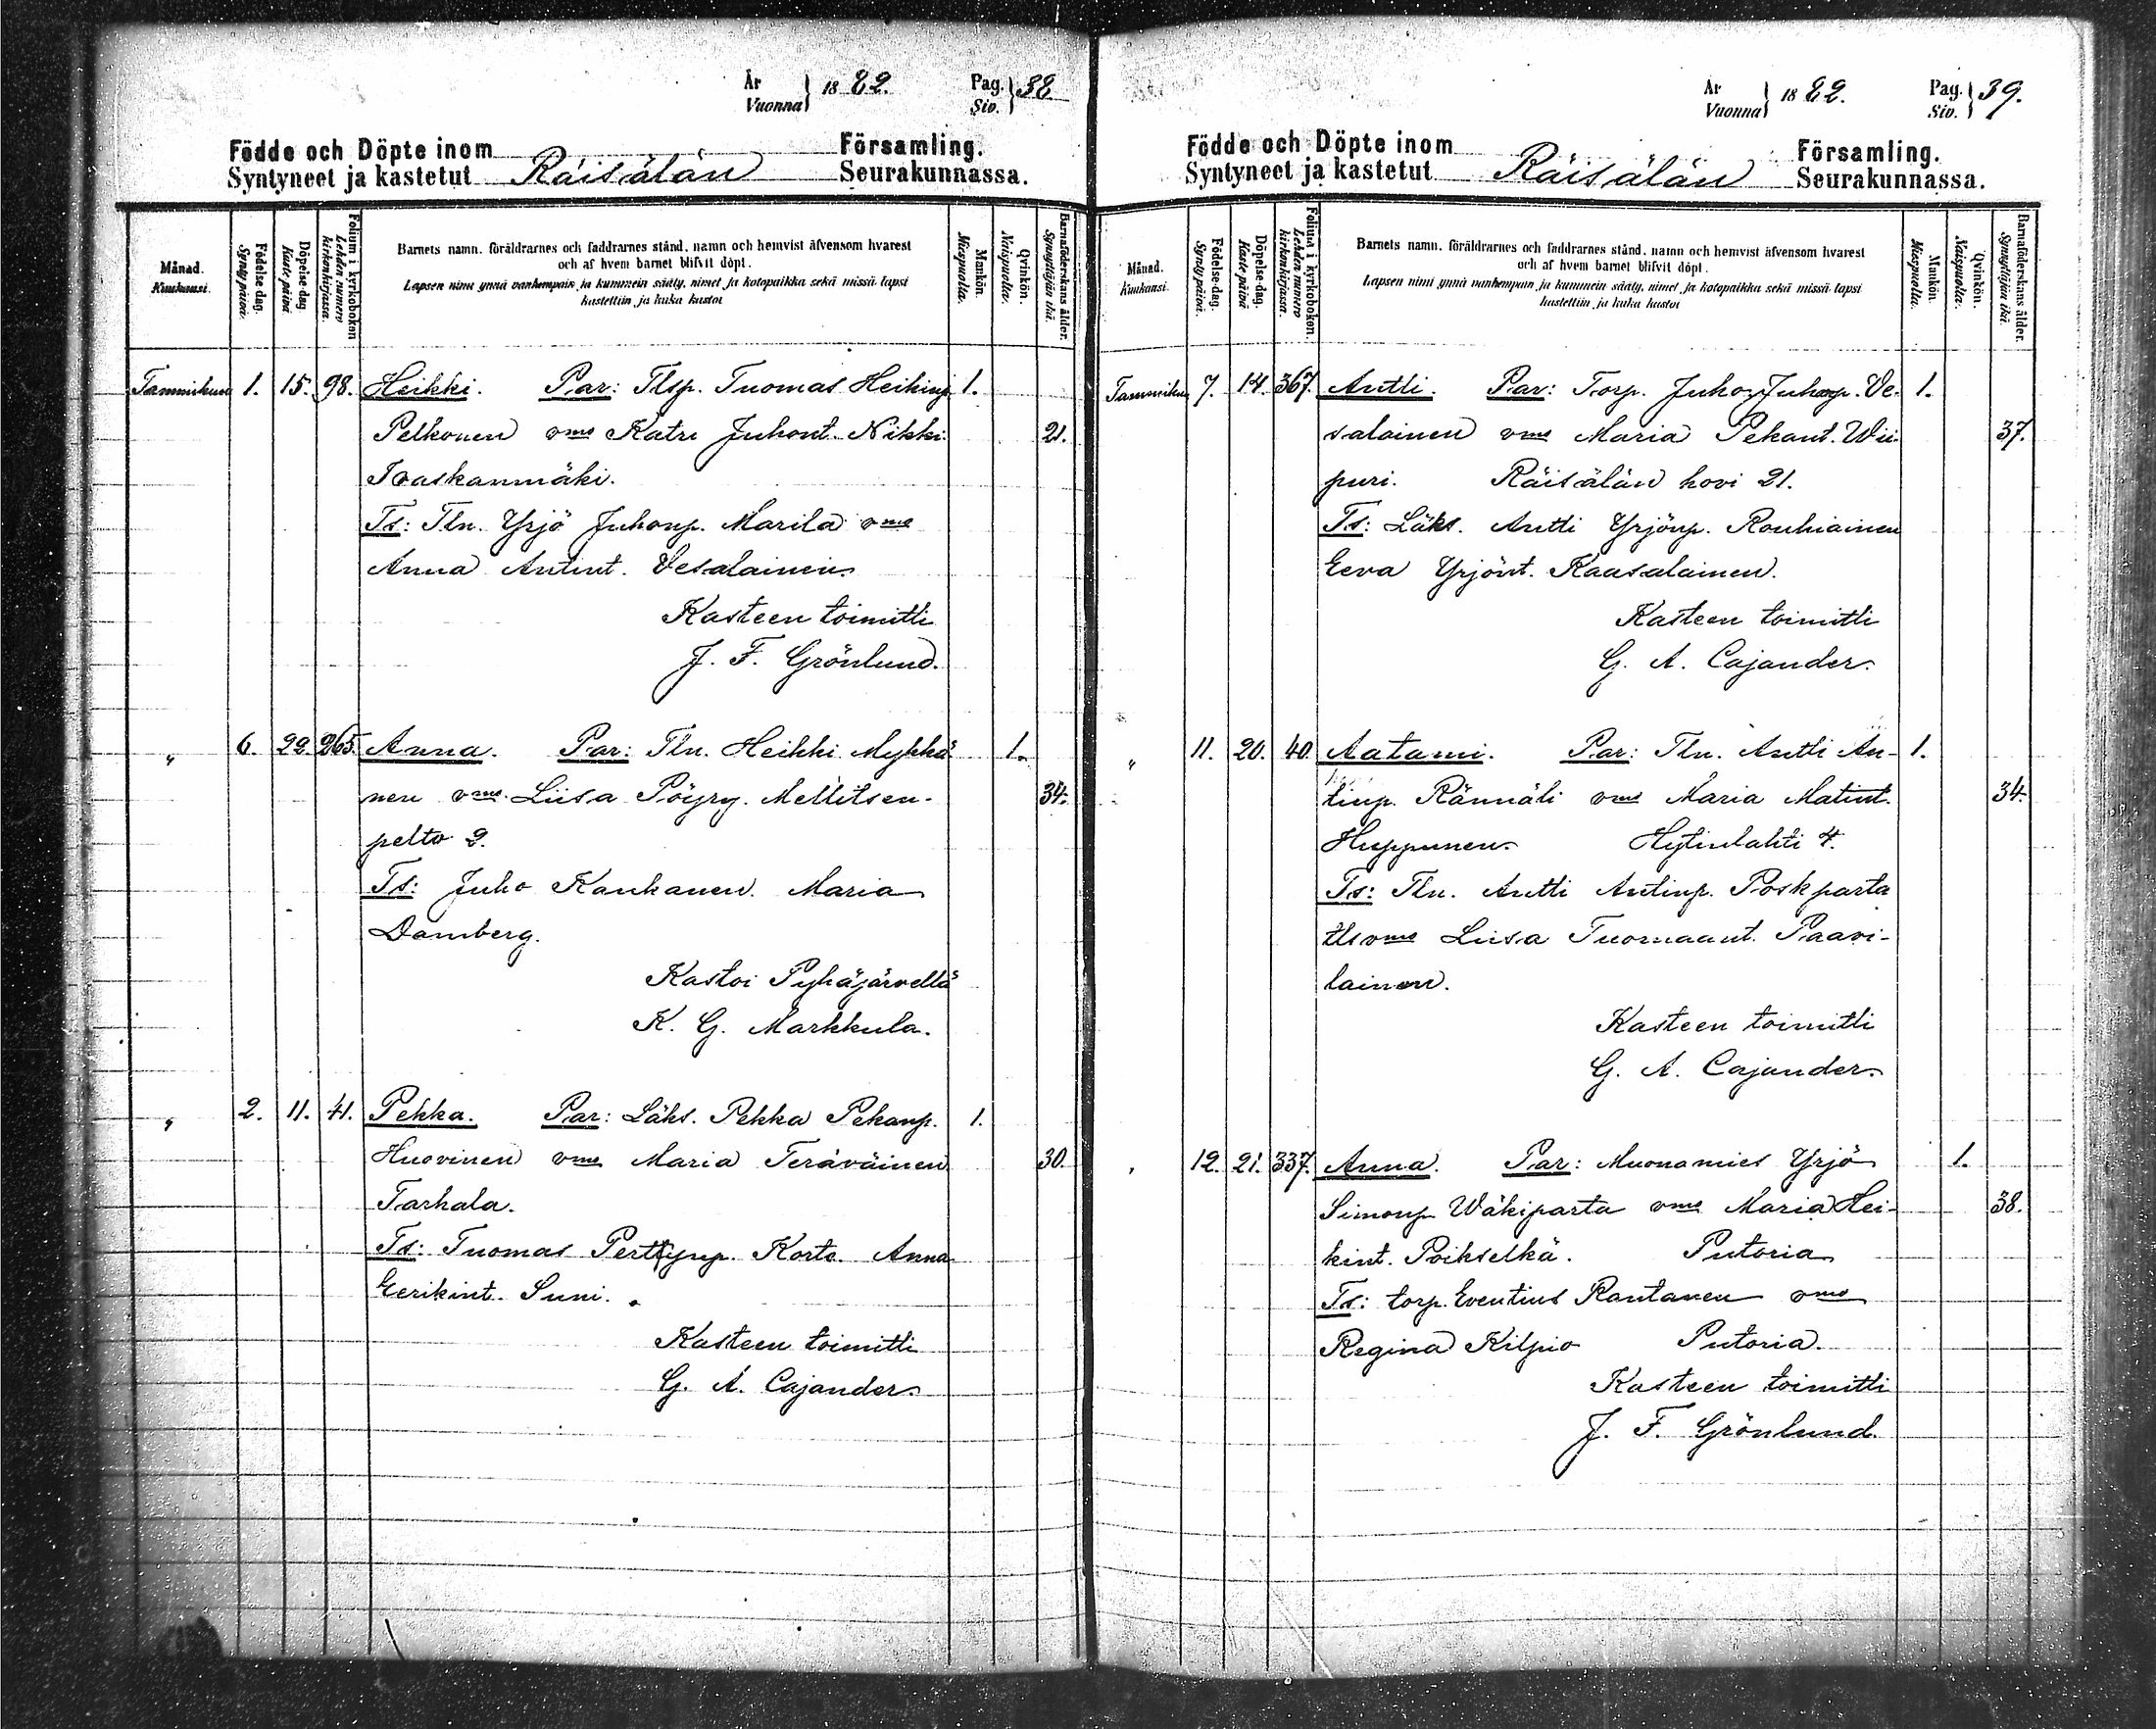 År
Vuonna } 1882. Pag.
Siv. } 38
Födde och Döpte inom Församling.
Syntyneet ja kastetut Räisälän Seurakunnassa.
Månad.
Kuukausi.
Födelse dag.
Syntypäivä.
Döpelse-dag
Kaste-päivä
Folium i kyrkoboken
Lehden numero
kirkonkirjassa.
Barnets namn, föräldrarnes och faddrarnes stånd, namn och hemvist äfvensom hvarest
och af hvem barnet blifvit döpt.
Lapsen nimi ynnä vanhempain ja kummein sääty, nimet ja kotopaikka sekä missä lapsi
kastettiin ja kuka kastoi
Mankön.
Miespuolia.
Qvinkön.
Naispuolia.
Barnaföderskans ålder.
Synnyttäjän ikä.
Tammikuu 1. 15. 98. Heikki. Par: Tlsp. Tuomas Heikinp. 1.
Pelkonen vmo Katri Juhont. Nikki. 21.
Ivaskanmäki.
Ts: Tln. Yrjö Juhonp. Marila vmo
Anna Antint. Vesalainen.
Kasteen toimitti
J. F. Grönlund.
" 6. 22. 265. Anna. Par: Tln. Heikki Mykkä- 1.
nen vmo. Liisa Pöyry. Mellitsen- 34.
pelto 2.
Ts: Juho Kaukanen. Maria
Damberg.
Kastoi Pyhäjärvellä
K. G. Markkula.
" 2. 11. 41. Pekka. Par: Läks. Pekka Pekanp. 1.
Huovinen vmo Maria Teräväinen 30.
Tarhala.
Ts: Tuomas Perttynp. Korte. Anna
Eerikint. Suni.
Kasteen toimitti
G. A. Cajander.
År
Vuonna } 1882. Pag.
Siv. } 39.
Födde och Döpte inom Församling.
Syntyneet ja kastetut Räisälän Seurakunnassa.
Månad.
Kuukausi.
Födelse-dag.
Syntypäivä.
Döpelse-dag.
Kaste-päivä
Folium i kyrkoboken.
Lehden numero
kirkonkirjassa.
Barnets namn, föräldrarnes och faddrarnes stånd, namn och hemvist äfvensom hvarest
och af hvem barnet blifvit döpt.
Lapsen nimi ynnä vanhempain ja kummein sääty, nimet ja kotopaikka sekä missä lapsi
kastettiin ja kuka kastoi
Mankön.
Miespuolia.
Qvinkön.
Naispuolia.
Barnaföderskans ålder.
Synnyttäjän ikä.
Tammikuu 7. 14. 367. Antti. Par: Torp. Juho Juhonp. Ve- 1.
salainen vmo Maria Pekant. Wii- 37.
puri. Räisälän hovi 21.
Ts: Läks. Antti Yrjönp. Rouhiainen
Eeva Yrjönt. Kaasalainen.
Kasteen toimitti
G. A. Cajander.
" 11. 20. 40. Aatami. Par: Tln. Antti An- 1.
tinp. Rännäli vmo Maria Matint. 34.
Huppunen. Hytinlahti 4.
Ts: Tln. Antti Antinp. Poskparta
tlsvmo Liisa Tuomaant. Paavi-
lainen.
Kasteen toimitti
G. A. Cajander.
" 12. 21. 337. Anna. Par: Muonamies Yrjö 1.
Simonp. Wäkiparta vmo Maria Hei- 38.
kint. Poikselkä. Putoria
Ts: torp. Eventius Rantanen vmo
Regina Kilpio Putoria.
Kasteen toimitti
J. F. Grönlund.